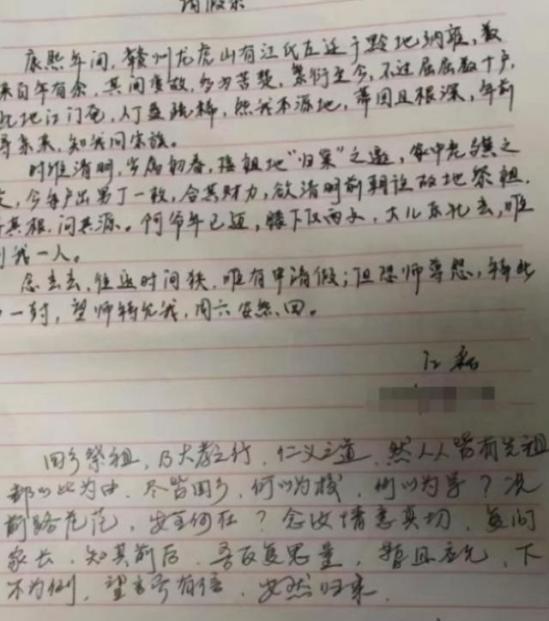 请假条
康熙年间，赣州龙虎山有江氏左迁于黔地纳雍，数
来百年有余，其间变故，多为苦楚，繁衍至今，不过屈屈数十户，
此地江门奄，人丁益稀，然我本源地，蒂固且根深，年前
寻亲来，知我同宗族。
时维清明，岁属初春，接祖地“归案”之邀，家中老
，今年户出男丁一枚，合其财力，欲清明前朝往故地祭祖，
其根，问其源。何爷年已迈，膝下仅两子，大儿东北去，唯
我一人。
念去去，往返时间狭，唯有申请假；但恐师尊怨，特此
一封，望师特允我，周六安然回。
江
回乡祭祖，乃大孝之行，仁义之道，然人人皆有先祖
都以此为由，尽皆回乡，何以为校，何以为学？况
前路茫茫，安全何在？念汝情意真切，复问
家长，知其前后，吾反复思量，暂且应允，下
不为例，望言而有信，安然归来